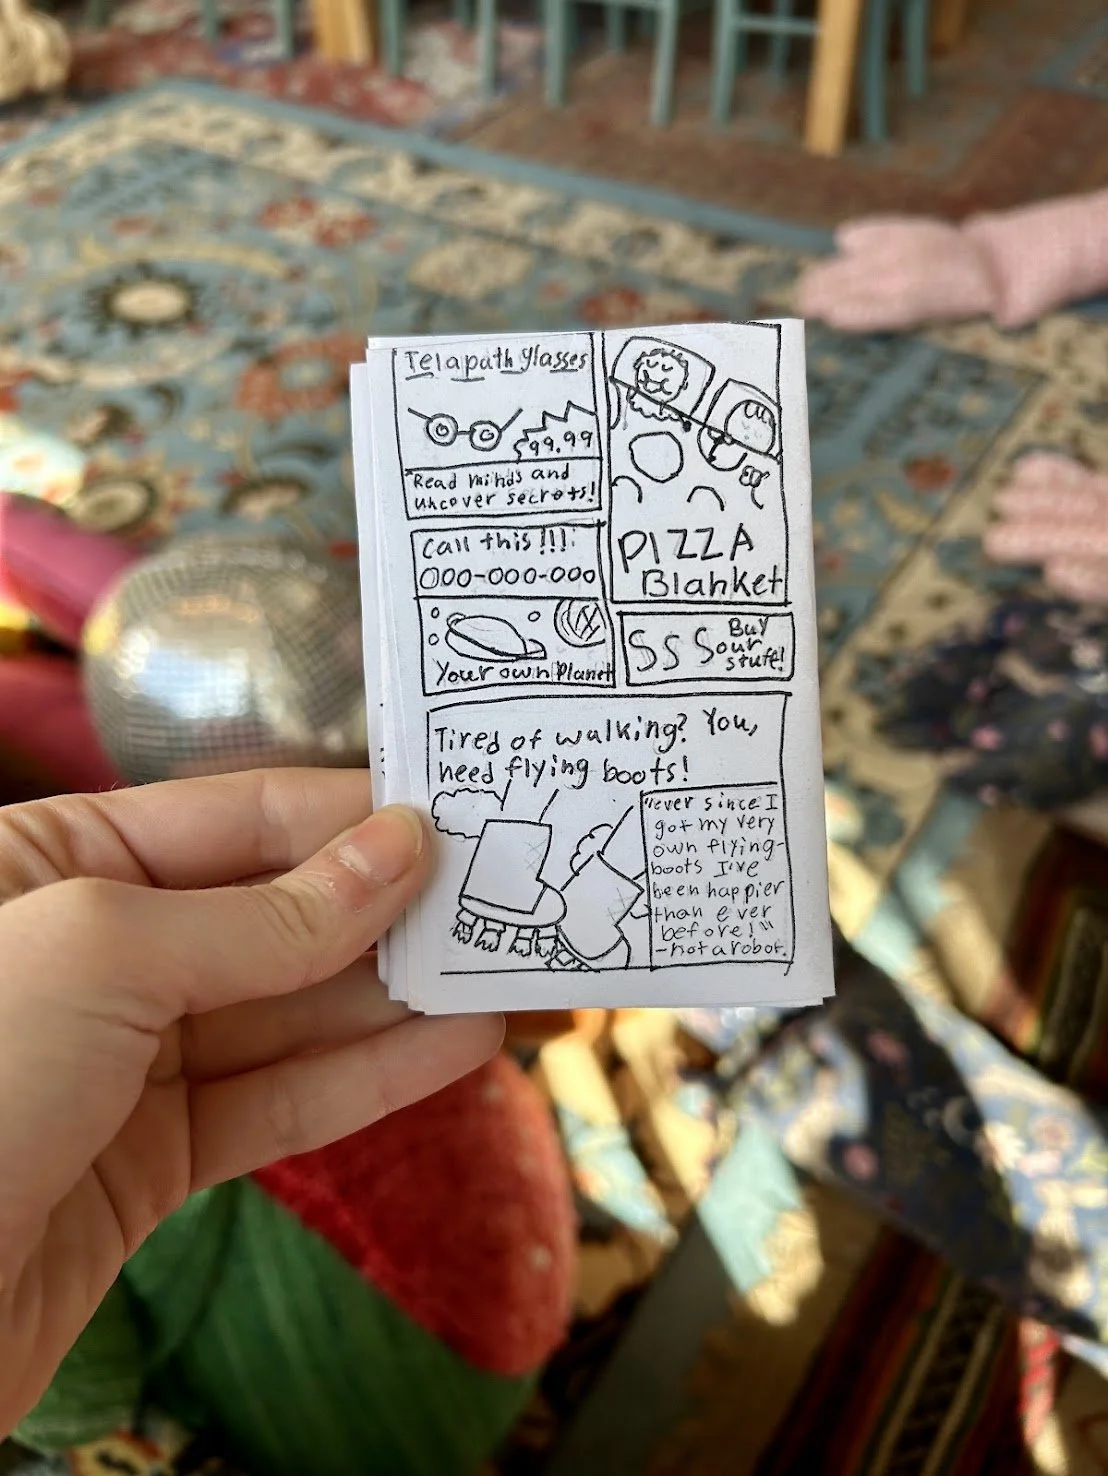 Telapath glasses
99.99
"Read minds and
uncover secrets!
Call this!!!
000-000-000
Your own Planet
PIZZA
Blanket
SSS Buy
our
stuff!
Tired of walking? You,
need flying boots!
"ever since I
got my very
own flying-
boots I've
been happier
than ever
before!"
-not a robot.